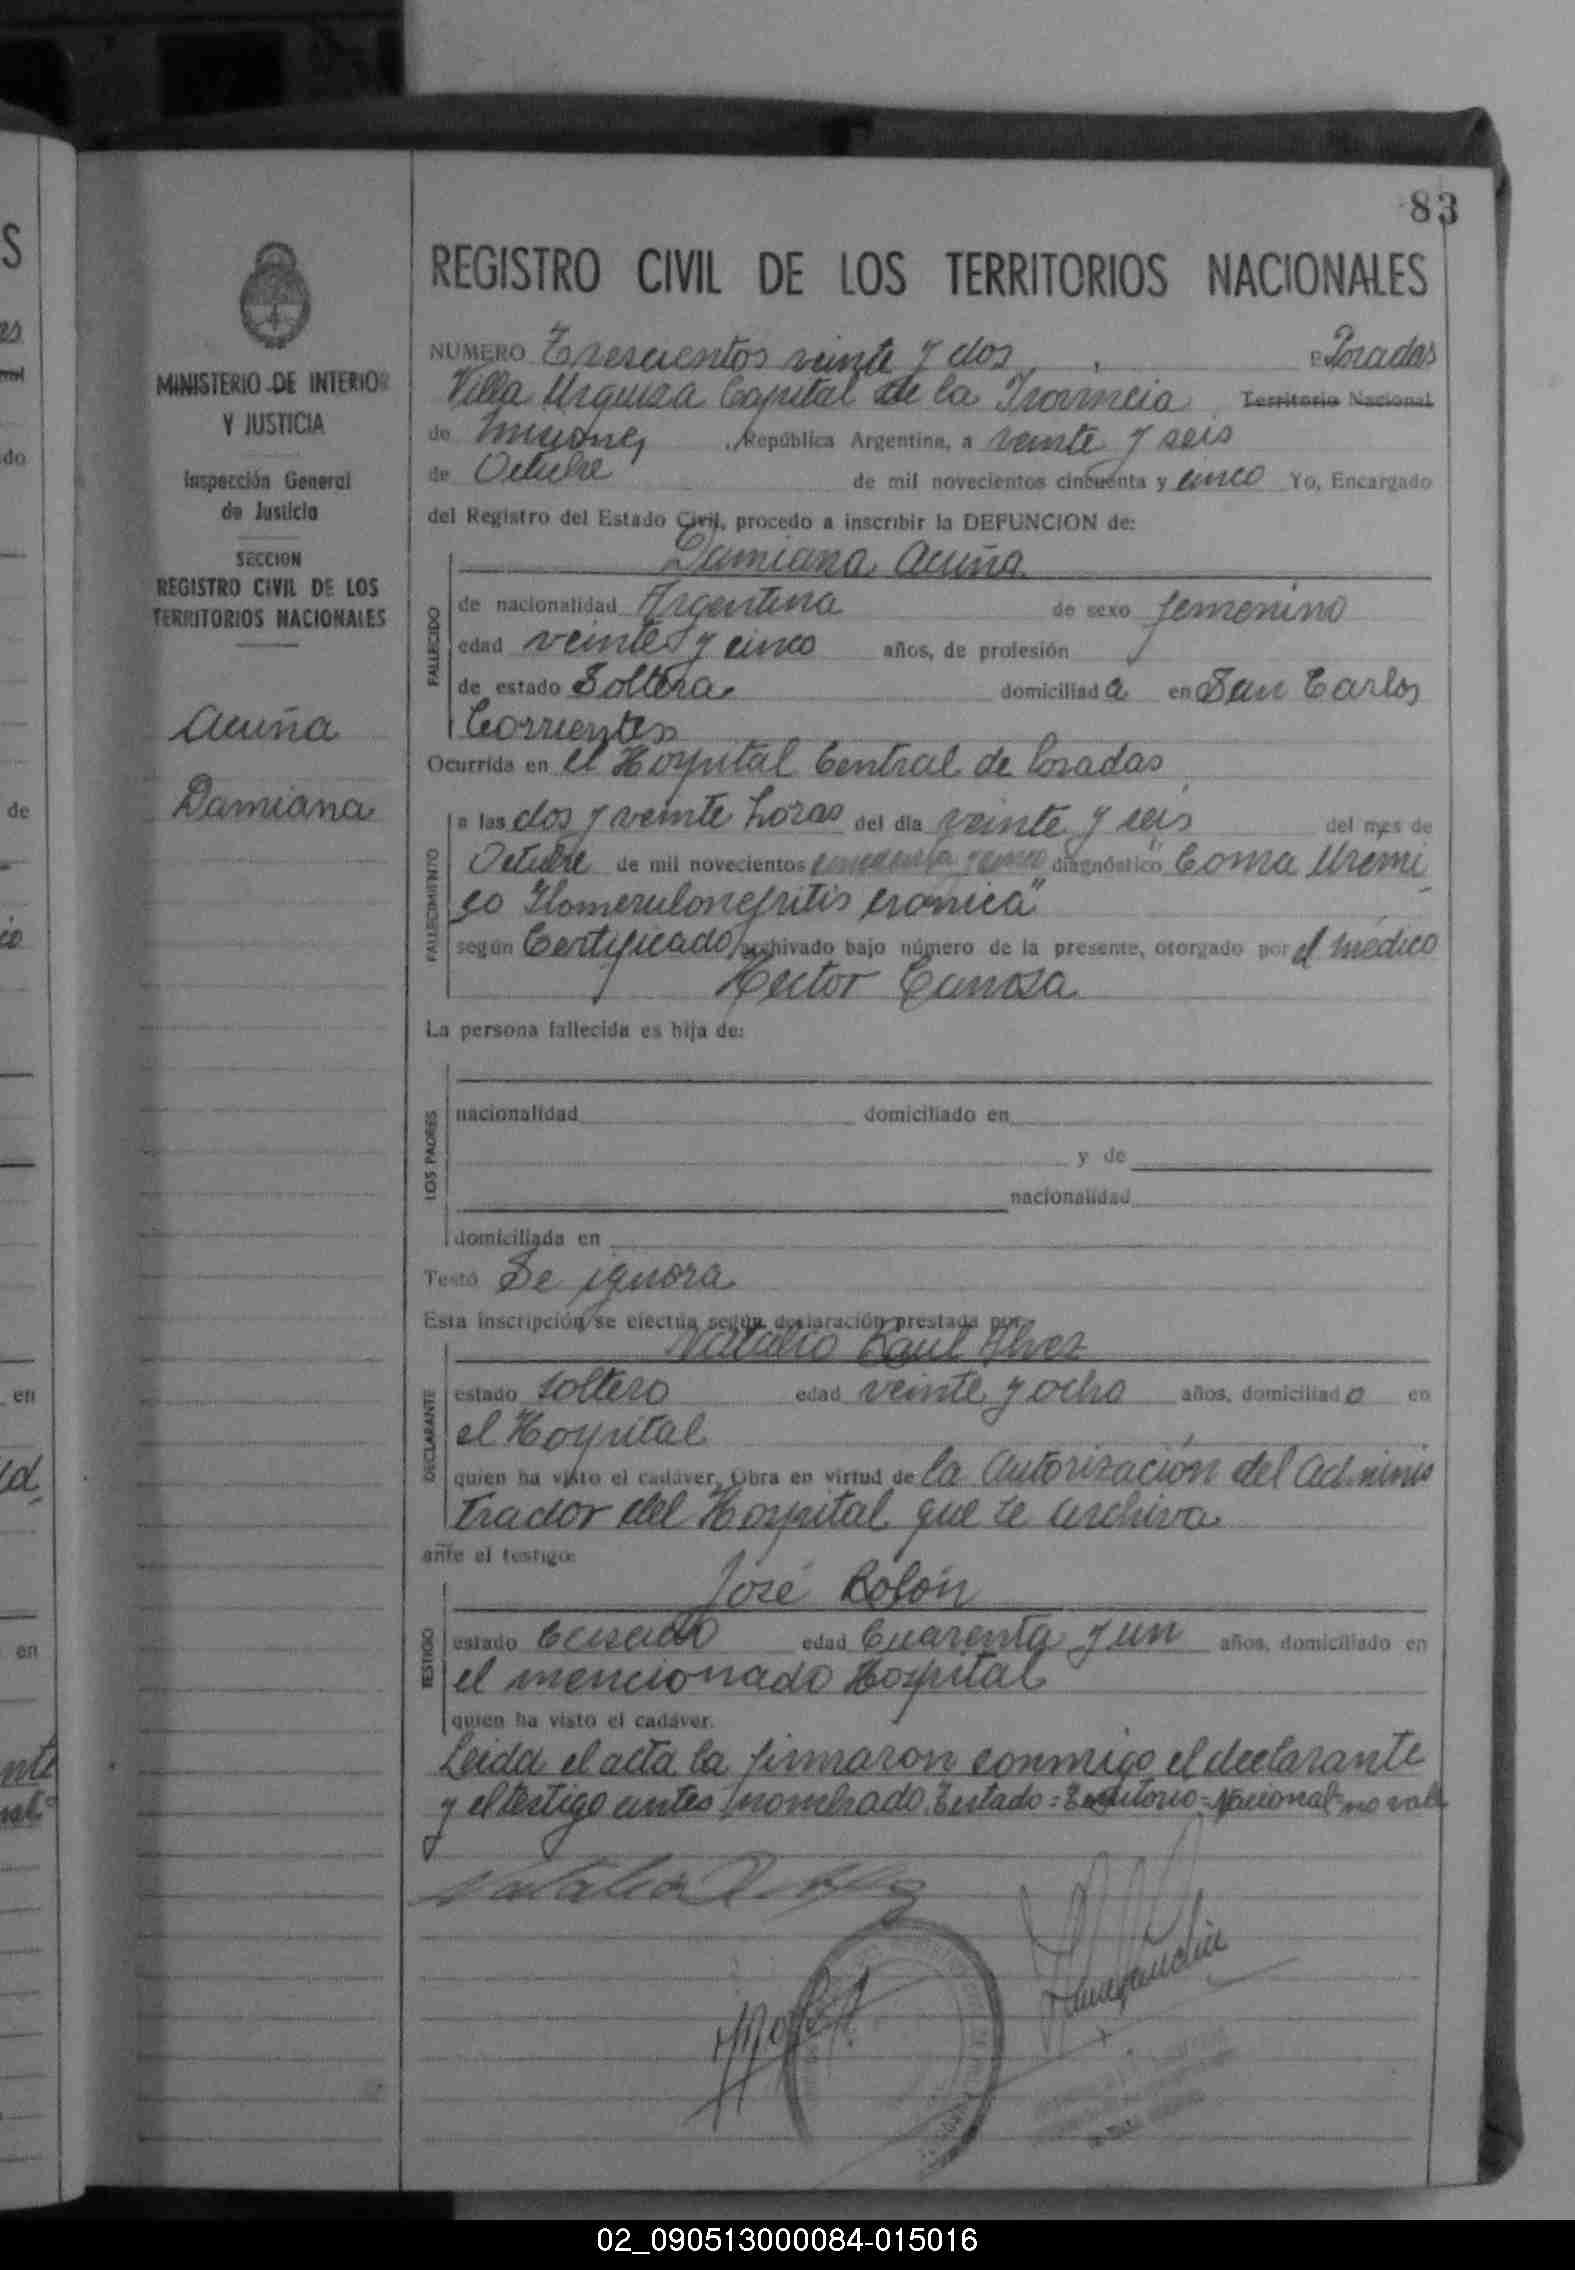 83
REGISTRO CIVIL DE LOS TERRITORIOS NACIONALES
MINISTERIO DE INTERIOR
Y JUSTICIA
Inspección General
de Justicia
SECCION
REGISTRO CIVIL DE LOS
TERRITORIOS NACIONALES
Acuña
Damiana
NUMERO Trescientos veinte y dos Posadas
Villa Urquiza Capital de la Provincia Territorio Nacional
de Misiones, República Argentina, a veinte y seis
de Octubre de mil novecientos cincuenta y cinco Yo, Encargado
del Registro del Estado Civil, procedo a inscribir la DEFUNCION de:
Damiana Acuña
FALLECIDO
de nacionalidad Argentina de sexo femenino
edad veinte y cinco años, de profesión
de estado Soltera domiciliada en San Carlos
Corrientes
Ocurrida en el Hospital Central de Posadas
FALLECIMIENTO
a las dos y veinte horas del día veinte y seis del mes de
Octubre de mil novecientos cincuenta y cinco diagnóstico "Coma Uremi
co Glomerulonefritis cronica"
según Certificado archivado bajo número de la presente, otorgado por el médico
Hector
La persona fallecida es hija de:
LOS PADRES
nacionalidad domiciliado en
y de
nacionalidad
domiciliada en
Testó Se ignora
Esta inscripción se efectúa según declaración prestada por
Natalio Raul Alvez
DECLARANTE
estado soltero edad veinte y ocho años, domiciliado en
el Hospital
quien ha visto el cadáver. Obra en virtud de la Autorización del Adminis
trador del Hospital que se archiva
ante el testigo:
José Rolón
TESTIGO
estado Casado edad Cuarenta y un años, domiciliado en
el mencionado Hospital
quien ha visto el cadáver.
Leida el acta la firmaron conmigo el declarante
y el testigo antes nombrado. Testado = Territorio = Nacional = no vale
02_090513000084-015016